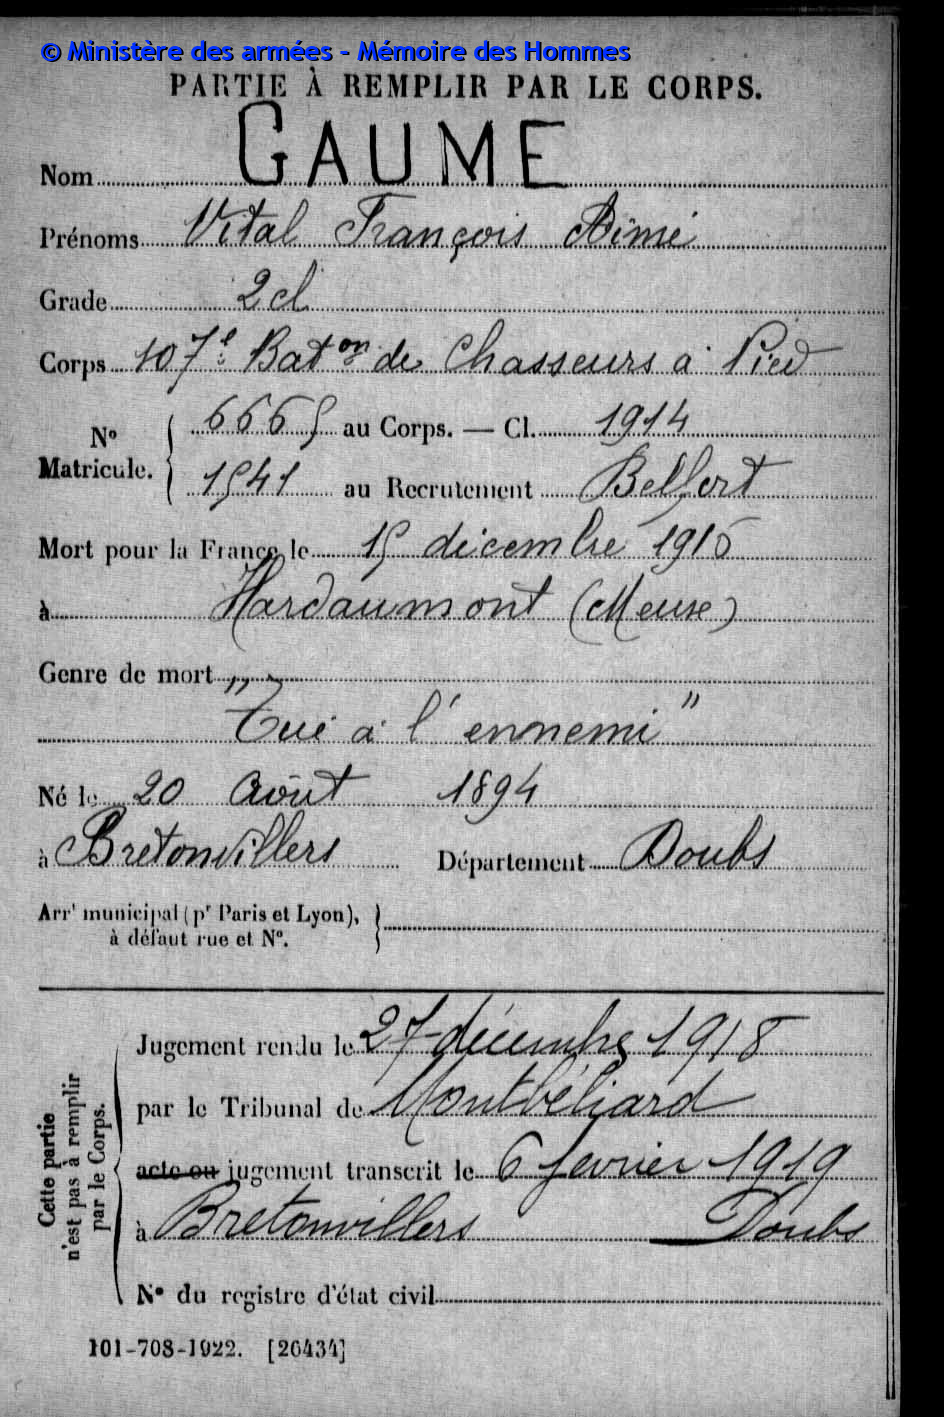 © Ministère des armées - Mémoire des Hommes
PARTIE À REMPLIR PAR LE CORPS.
Nom GAUME
Prénoms Vital François Aimé
Grade 2 cl
Corps 107e Baton de Chasseurs à Pied
No Matricule. { 6665 au Corps. — Cl. 1914
1541 au Recrutement Belfort
Mort pour la France le 15 décembre 1916
à Hardaumont (Meuse)
Genre de mort
"Tué à l'ennemi"
Né le 20 Août 1894
à Bretonvillers Département Doubs
Arrt municipal (pr Paris et Lyon),
à défaut rue et No.
Cette partie n'est pas à remplir par le Corps.
Jugement rendu le 27 décembre 1918
par le Tribunal de Montbéliard
acte ou jugement transcrit le 6 février 1919
à Bretonvillers Doubs
No du registre d'état civil
101-708-1922. [26434]